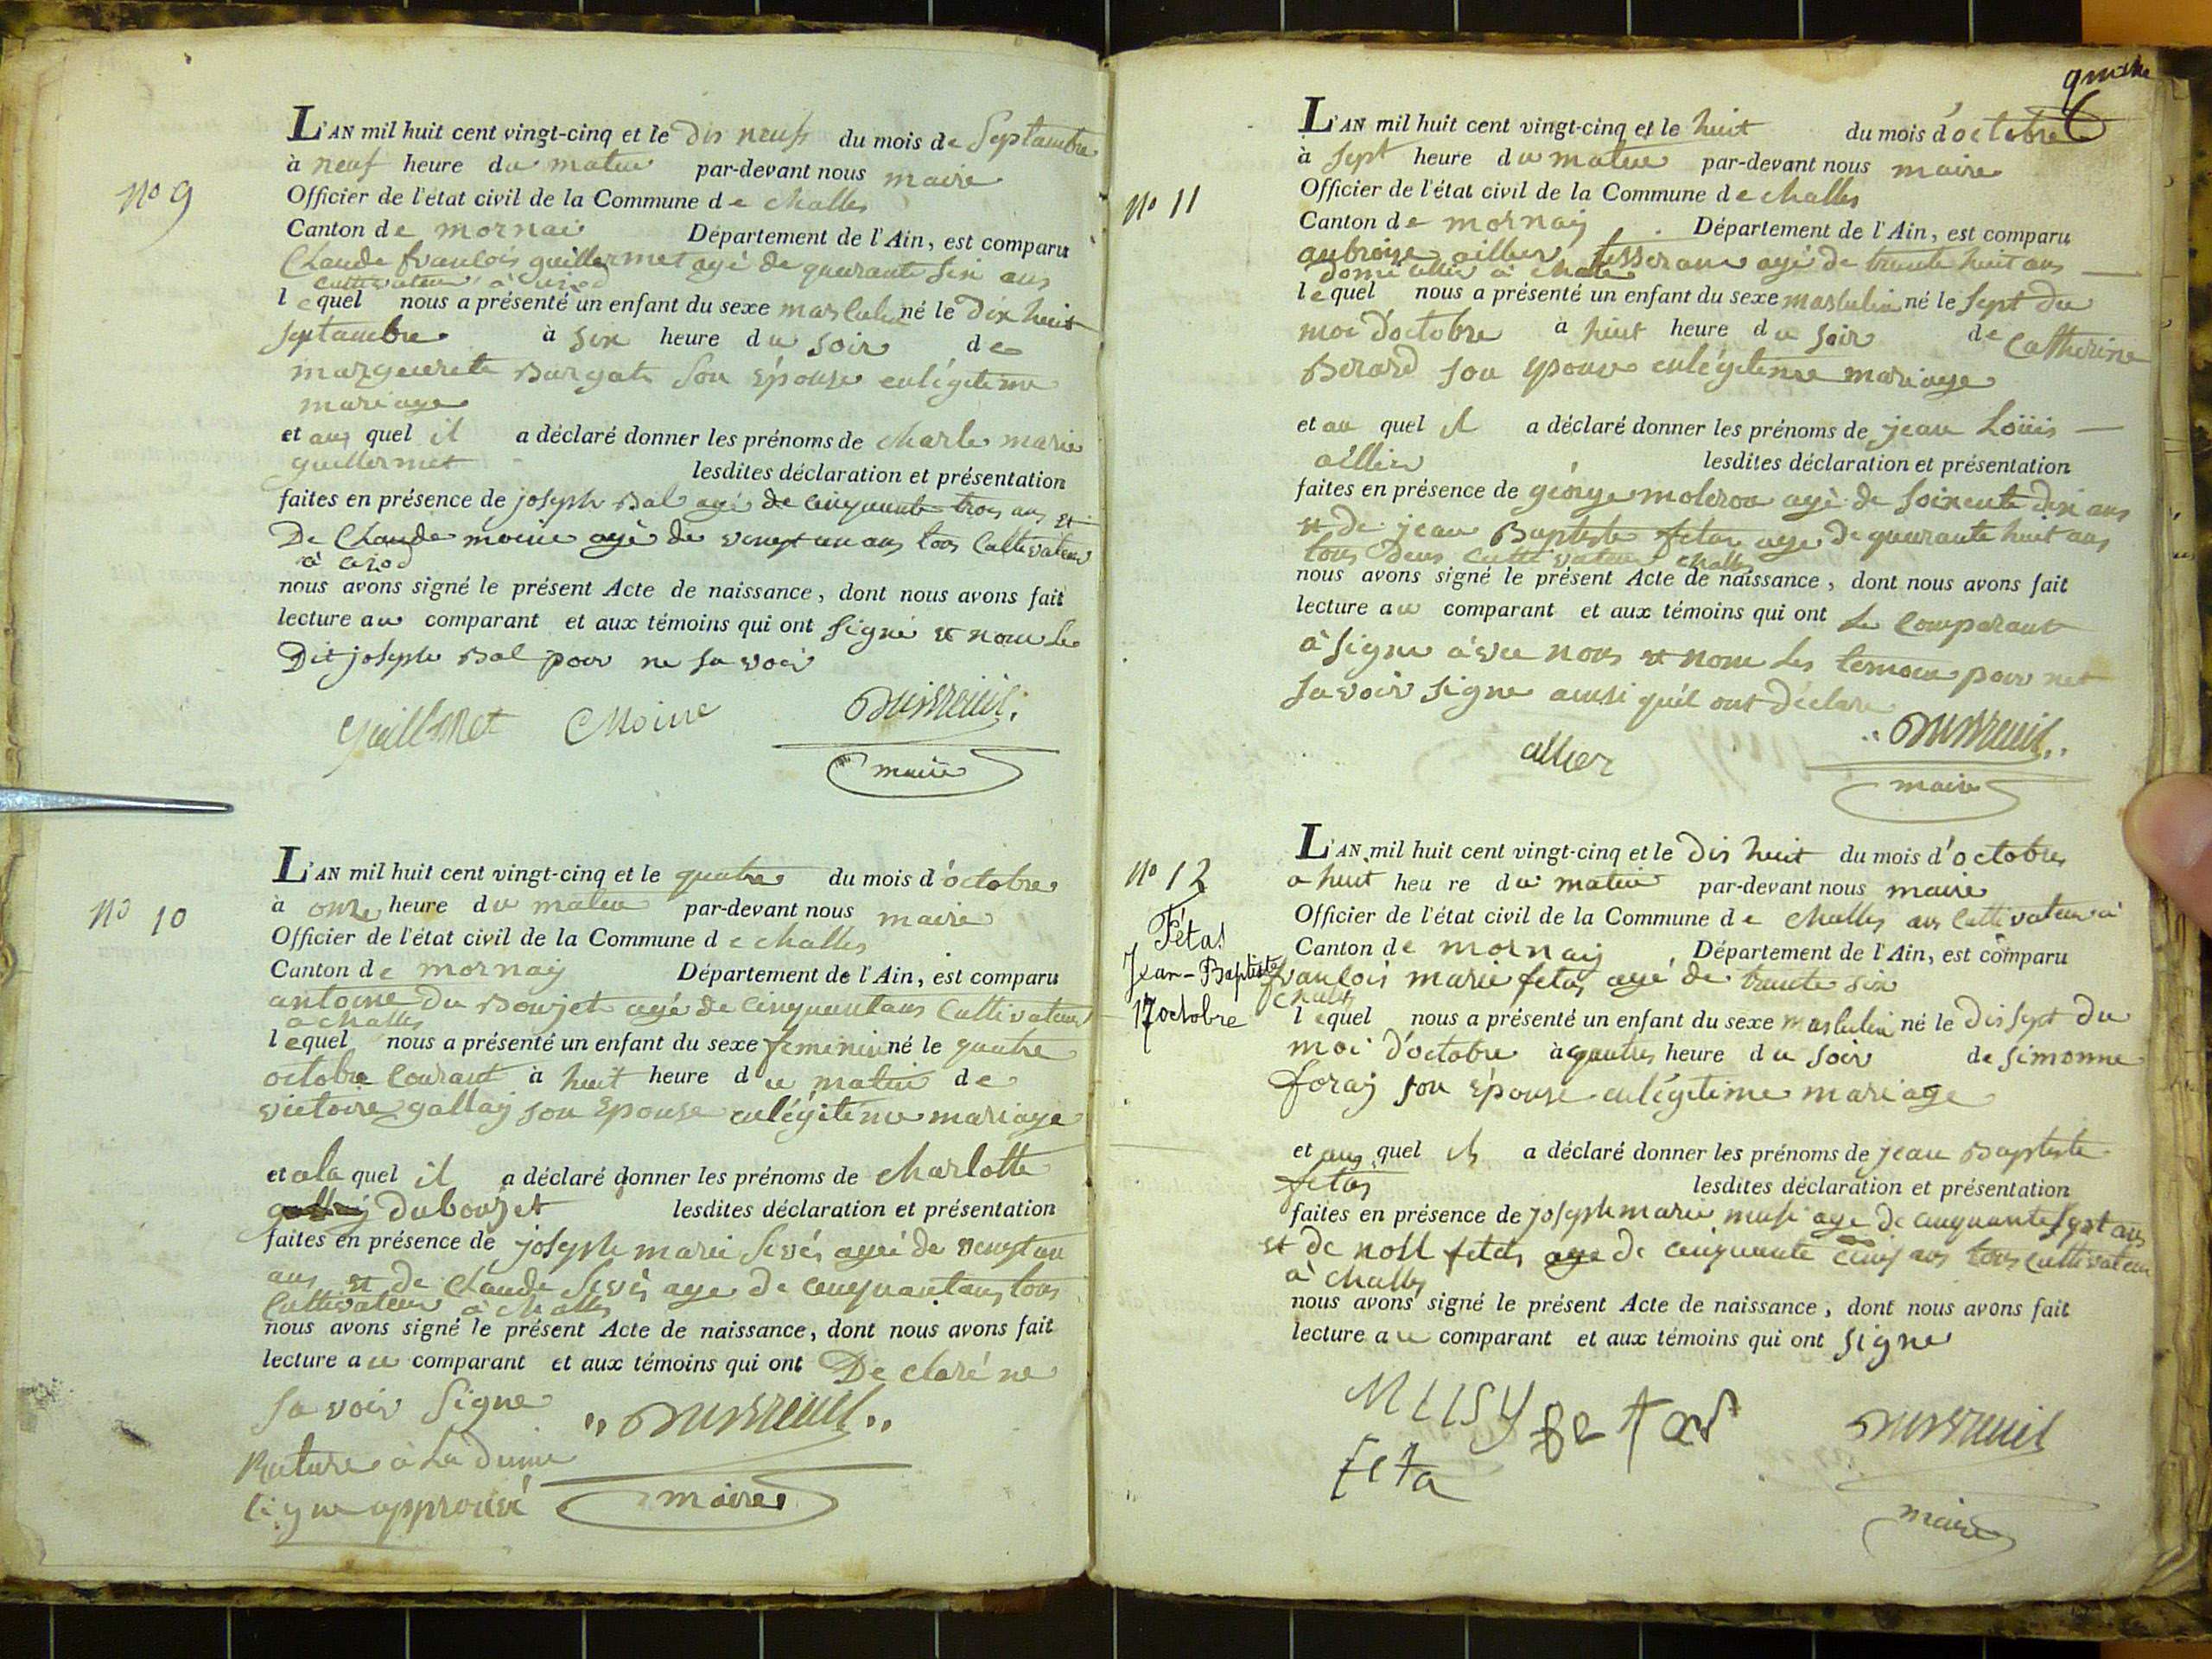 No 9
L'AN mil huit cent vingt-cinq et le dis neufs du mois de Septambre
à neuf heure du matin par-devant nous maire
Officier de l'état civil de la Commune de challes
Canton de mornai Département de l'Ain, est comparu
Claude françois guillermet agé de quarante six ans
cultivateur à
lequel nous a présenté un enfant du sexe masculin né le dix huit
septambre à six heure du soir de
marguerite Burgat son épouse en légitime
mariage
et auquel il a déclaré donner les prénoms de charle marie
guillermet lesdites déclaration et présentation
faites en présence de joseph Bal agé de cinquante trois ans et
De Claude moine agé de vingt un ans tous Cultivateur
à
nous avons signé le présent Acte de naissance, dont nous avons fait
lecture au comparant et aux témoins qui ont signé et nom le
Dit joseph Bal pour ne savoir
Guillermet CMoine Dubreuil
maire
No 10
L'AN mil huit cent vingt-cinq et le quatre du mois d'octobre
à onze heure du matin par-devant nous maire
Officier de l'état civil de la Commune de challes
Canton de mornay Département de l'Ain, est comparu
antoine du Boujet agé de cinquantans Cultivateur
à challes
lequel nous a présenté un enfant du sexe feminin né le quatre
octobre courant à huit heure du matin de
victoire gallay son Epouse en légitime mariage
et ala quel il a déclaré donner les prénoms de charlotte
duboujet lesdites déclaration et présentation
faites en présence de joseph marie Sevés agé de vengt un
ans et de Claude Sevés age de cinquantans tous
Cultivateur à challes
nous avons signé le présent Acte de naissance, dont nous avons fait
lecture au comparant et aux témoins qui ont De claré ne
savoir Signe
Dubreuil
Rature à la
ligne approuvé
maire
6
No 11
L'AN mil huit cent vingt-cinq et le huit du mois d'octobre
à sept heure du matin par-devant nous maire
Officier de l'état civil de la Commune de challes
Canton de mornay Département de l'Ain, est comparu
anbroise allier tisseran agé de trente huit ans
domicilier à chale
lequel nous a présenté un enfant du sexe masculin né le sept du
moi d'octobre à huit heure du soir de Catherine
Berard son epouse en légitime mariage
et au quel il a déclaré donner les prénoms de jean Loüis
allier lesdites déclaration et présentation
faites en présence de géorge moleron agé de soixente dix ans
et de jean Baptiste fetas age de quarante huit ans
tous deus Cultivateur challes
nous avons signé le présent Acte de naissance, dont nous avons fait
lecture au comparant et aux témoins qui ont Le Comparant
à signe àvec nous et nom les temoin pour net
savoir signe ainsi quil ont déclare
allier
Dubreuil
maire
No 12
Fétas
Jean-Baptiste
17 octobre
L'AN mil huit cent vingt-cinq et le dis huit du mois d'octobre
a huit heure du matin par-devant nous maire
Officier de l'état civil de la Commune de challes ans Cultivateur à
Canton de mornay Département de l'Ain, est comparu
françois marie fetas agé de trente six
challes
lequel nous a présenté un enfant du sexe masculin né le dis sept du
moi d'octobre à quatres heure du soir de simonne
foray son Epouse en légitime mariage
et auquel il a déclaré donner les prénoms de jean Baptiste
fetas lesdites déclaration et présentation
faites en présence de joseph marie musi age de cinquante sept ans
et de noel fetas age de cinquante cinq ans tous cultivateur
à challes
nous avons signé le présent Acte de naissance, dont nous avons fait
lecture au comparant et aux témoins qui ont signe
MUSY fetas
feta
Dubreuil
maire